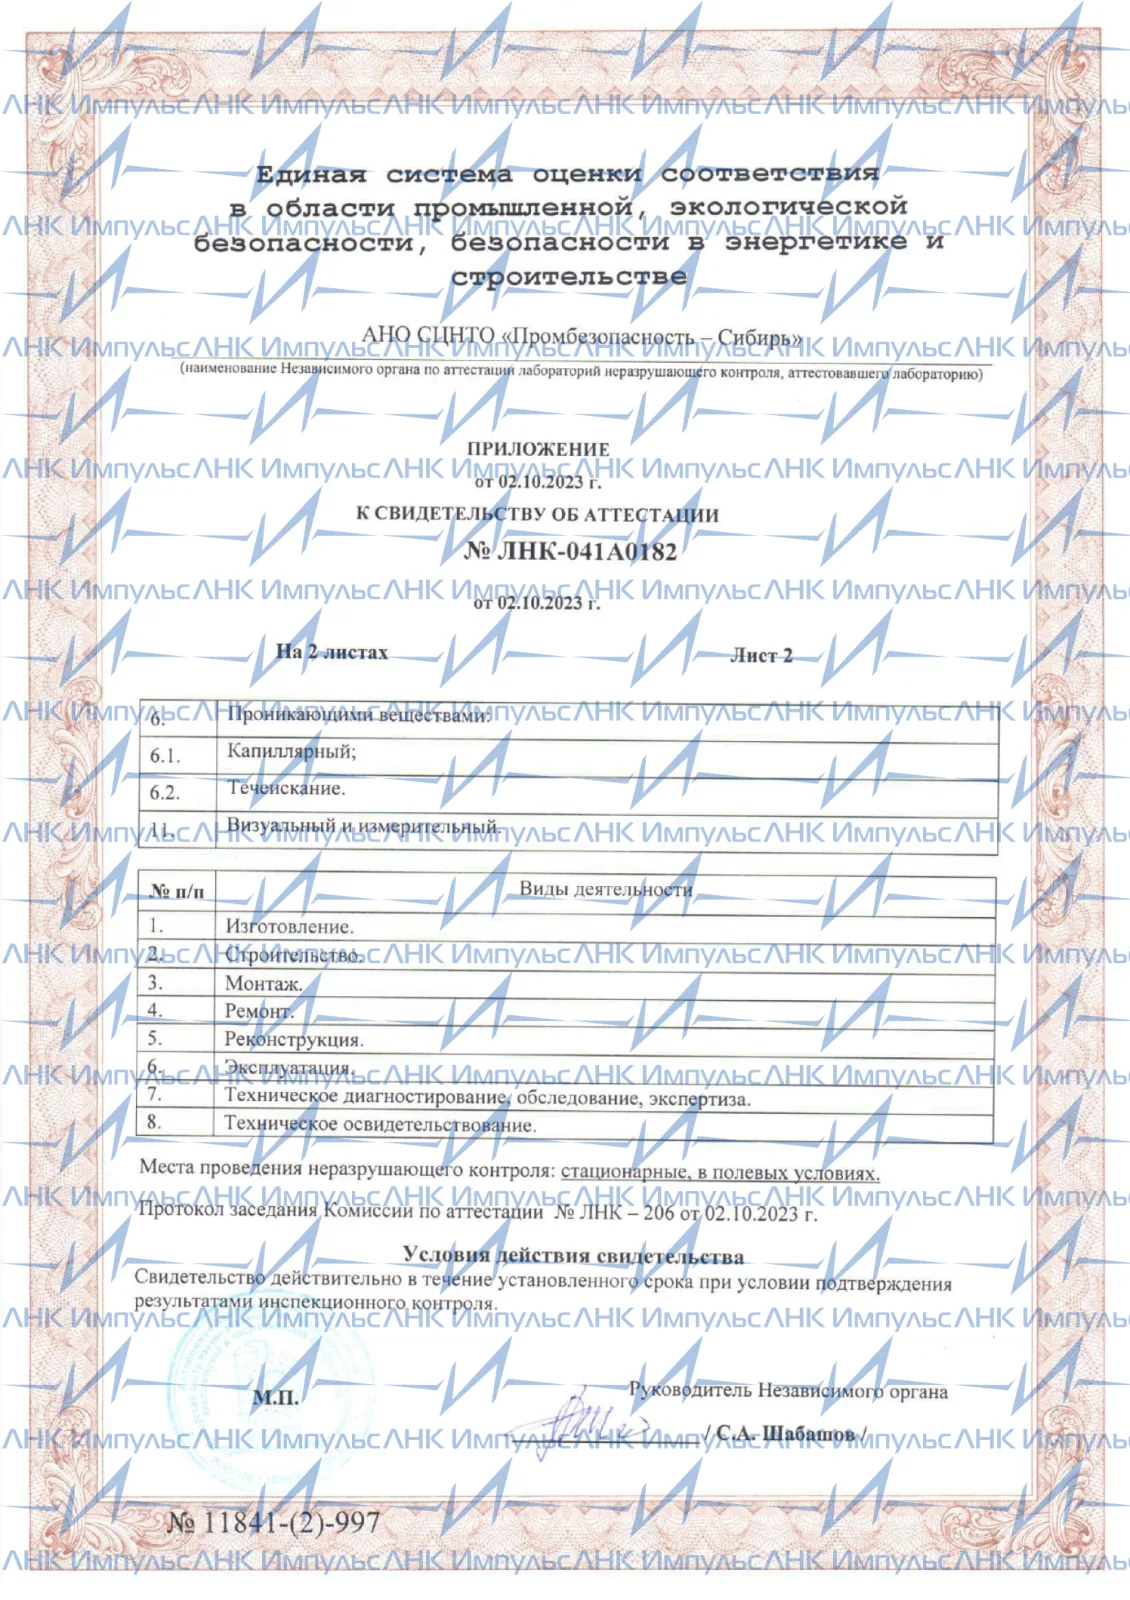 Единая система оценки соответствия
в области промышленной, экологической
безопасности, безопасности в энергетике и
строительстве
АНО СЦНТО «Промбезопасность – Сибирь»
(наименование Независимого органа по аттестации лабораторий неразрушающего контроля, аттестовавшего лабораторию)
ПРИЛОЖЕНИЕ
от 02.10.2023 г.
К СВИДЕТЕЛЬСТВУ ОБ АТТЕСТАЦИИ
№ ЛНК-041А0182
от 02.10.2023 г.
На 2 листах Лист 2
6. Проникающими веществами:
6.1. Капиллярный;
6.2. Течеискание.
11. Визуальный и измерительный.
№ п/п Виды деятельности
1. Изготовление.
2. Строительство.
3. Монтаж.
4. Ремонт.
5. Реконструкция.
6. Эксплуатация.
7. Техническое диагностирование, обследование, экспертиза.
8. Техническое освидетельствование.
Места проведения неразрушающего контроля: стационарные, в полевых условиях.
Протокол заседания Комиссии по аттестации № ЛНК – 206 от 02.10.2023 г.
Условия действия свидетельства
Свидетельство действительно в течение установленного срока при условии подтверждения
результатами инспекционного контроля.
Руководитель Независимого органа
М.П.
/ С.А. Шабашов /
№ 11841-(2)-997
ЛНК Импульс